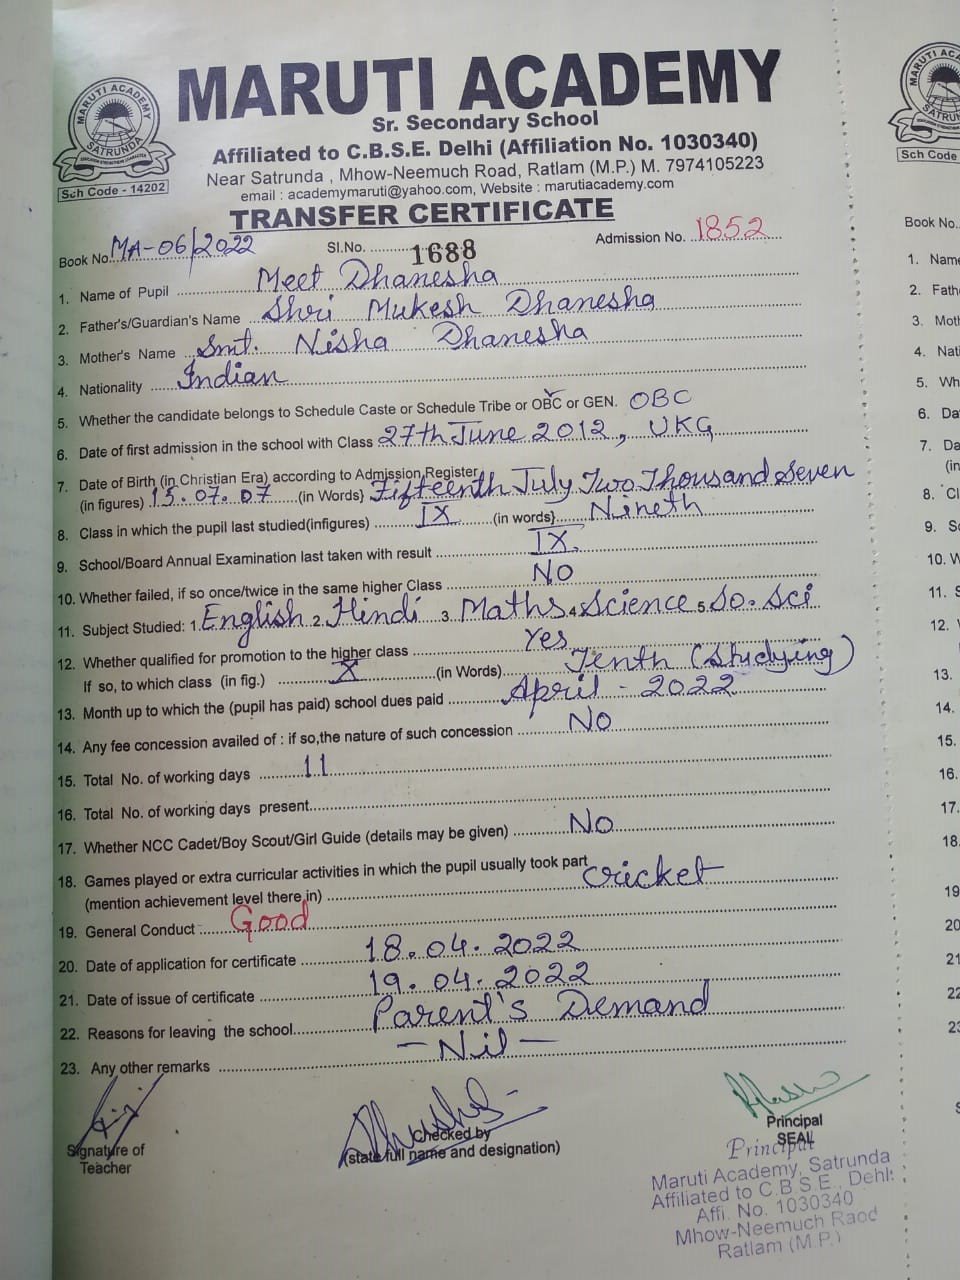 MARUTI ACADEMY
Sr. Secondary School
Affiliated to C.B.S.E. Delhi (Affiliation No. 1030340)
Near Satrunda , Mhow-Neemuch Road, Ratlam (M.P.) M. 7974105223
email : academymaruti@yahoo.com, Website : marutiacademy.com
MARUTI ACADEMY
SATRUNDA
Sch Code - 14202
TRANSFER CERTIFICATE
Book No. MA-06/2022 Sl.No. 1688 Admission No. 1852
1. Name of Pupil Meet Dhanesha
2. Father's/Guardian's Name Shri Mukesh Dhanesha
3. Mother's Name Smt. Nisha Dhanesha
4. Nationality Indian
5. Whether the candidate belongs to Schedule Caste or Schedule Tribe or OBC or GEN. OBC
6. Date of first admission in the school with Class 27th June 2012, UKG
7. Date of Birth (in Christian Era) according to Admission Register
(in figures) 15.07.07 (in Words} Fifteenth July Two Thousand Seven
8. Class in which the pupil last studied(infigures) IX (in words} Nineth
9. School/Board Annual Examination last taken with result IX
10. Whether failed, if so once/twice in the same higher Class No
11. Subject Studied: 1. English 2. Hindi 3. Maths 4. Science 5. So. Sci
12. Whether qualified for promotion to the higher class Yes
If so, to which class (in fig.) X (in Words) Tenth (Studying)
13. Month up to which the (pupil has paid) school dues paid April - 2022
14. Any fee concession availed of : if so,the nature of such concession No
15. Total No. of working days 11
16. Total No. of working days present
17. Whether NCC Cadet/Boy Scout/Girl Guide (details may be given) No
18. Games played or extra curricular activities in which the pupil usually took part
(mention achievement level there in) cricket
19. General Conduct Good
20. Date of application for certificate 18.04.2022
21. Date of issue of certificate 19.04.2022
22. Reasons for leaving the school Parent's Demand
23. Any other remarks -Nil-
Signature of
Teacher
Checked by
(state full name and designation)
Principal
SEAL
Principal
Maruti Academy, Satrunda
Affiliated to C.B.S.E., Delhi
Affi. No. 1030340
Mhow-Neemuch Raod
Ratlam (M.P.)
Sch Code
Book No.
1. Name
2. Fath
3. Mot
4. Nati
5. Wh
6. Dat
7. Da
(in
8. Cl
9. Sc
10. W
11. S
12.
13.
14.
15.
16.
17.
18.
19
20
21
22
23